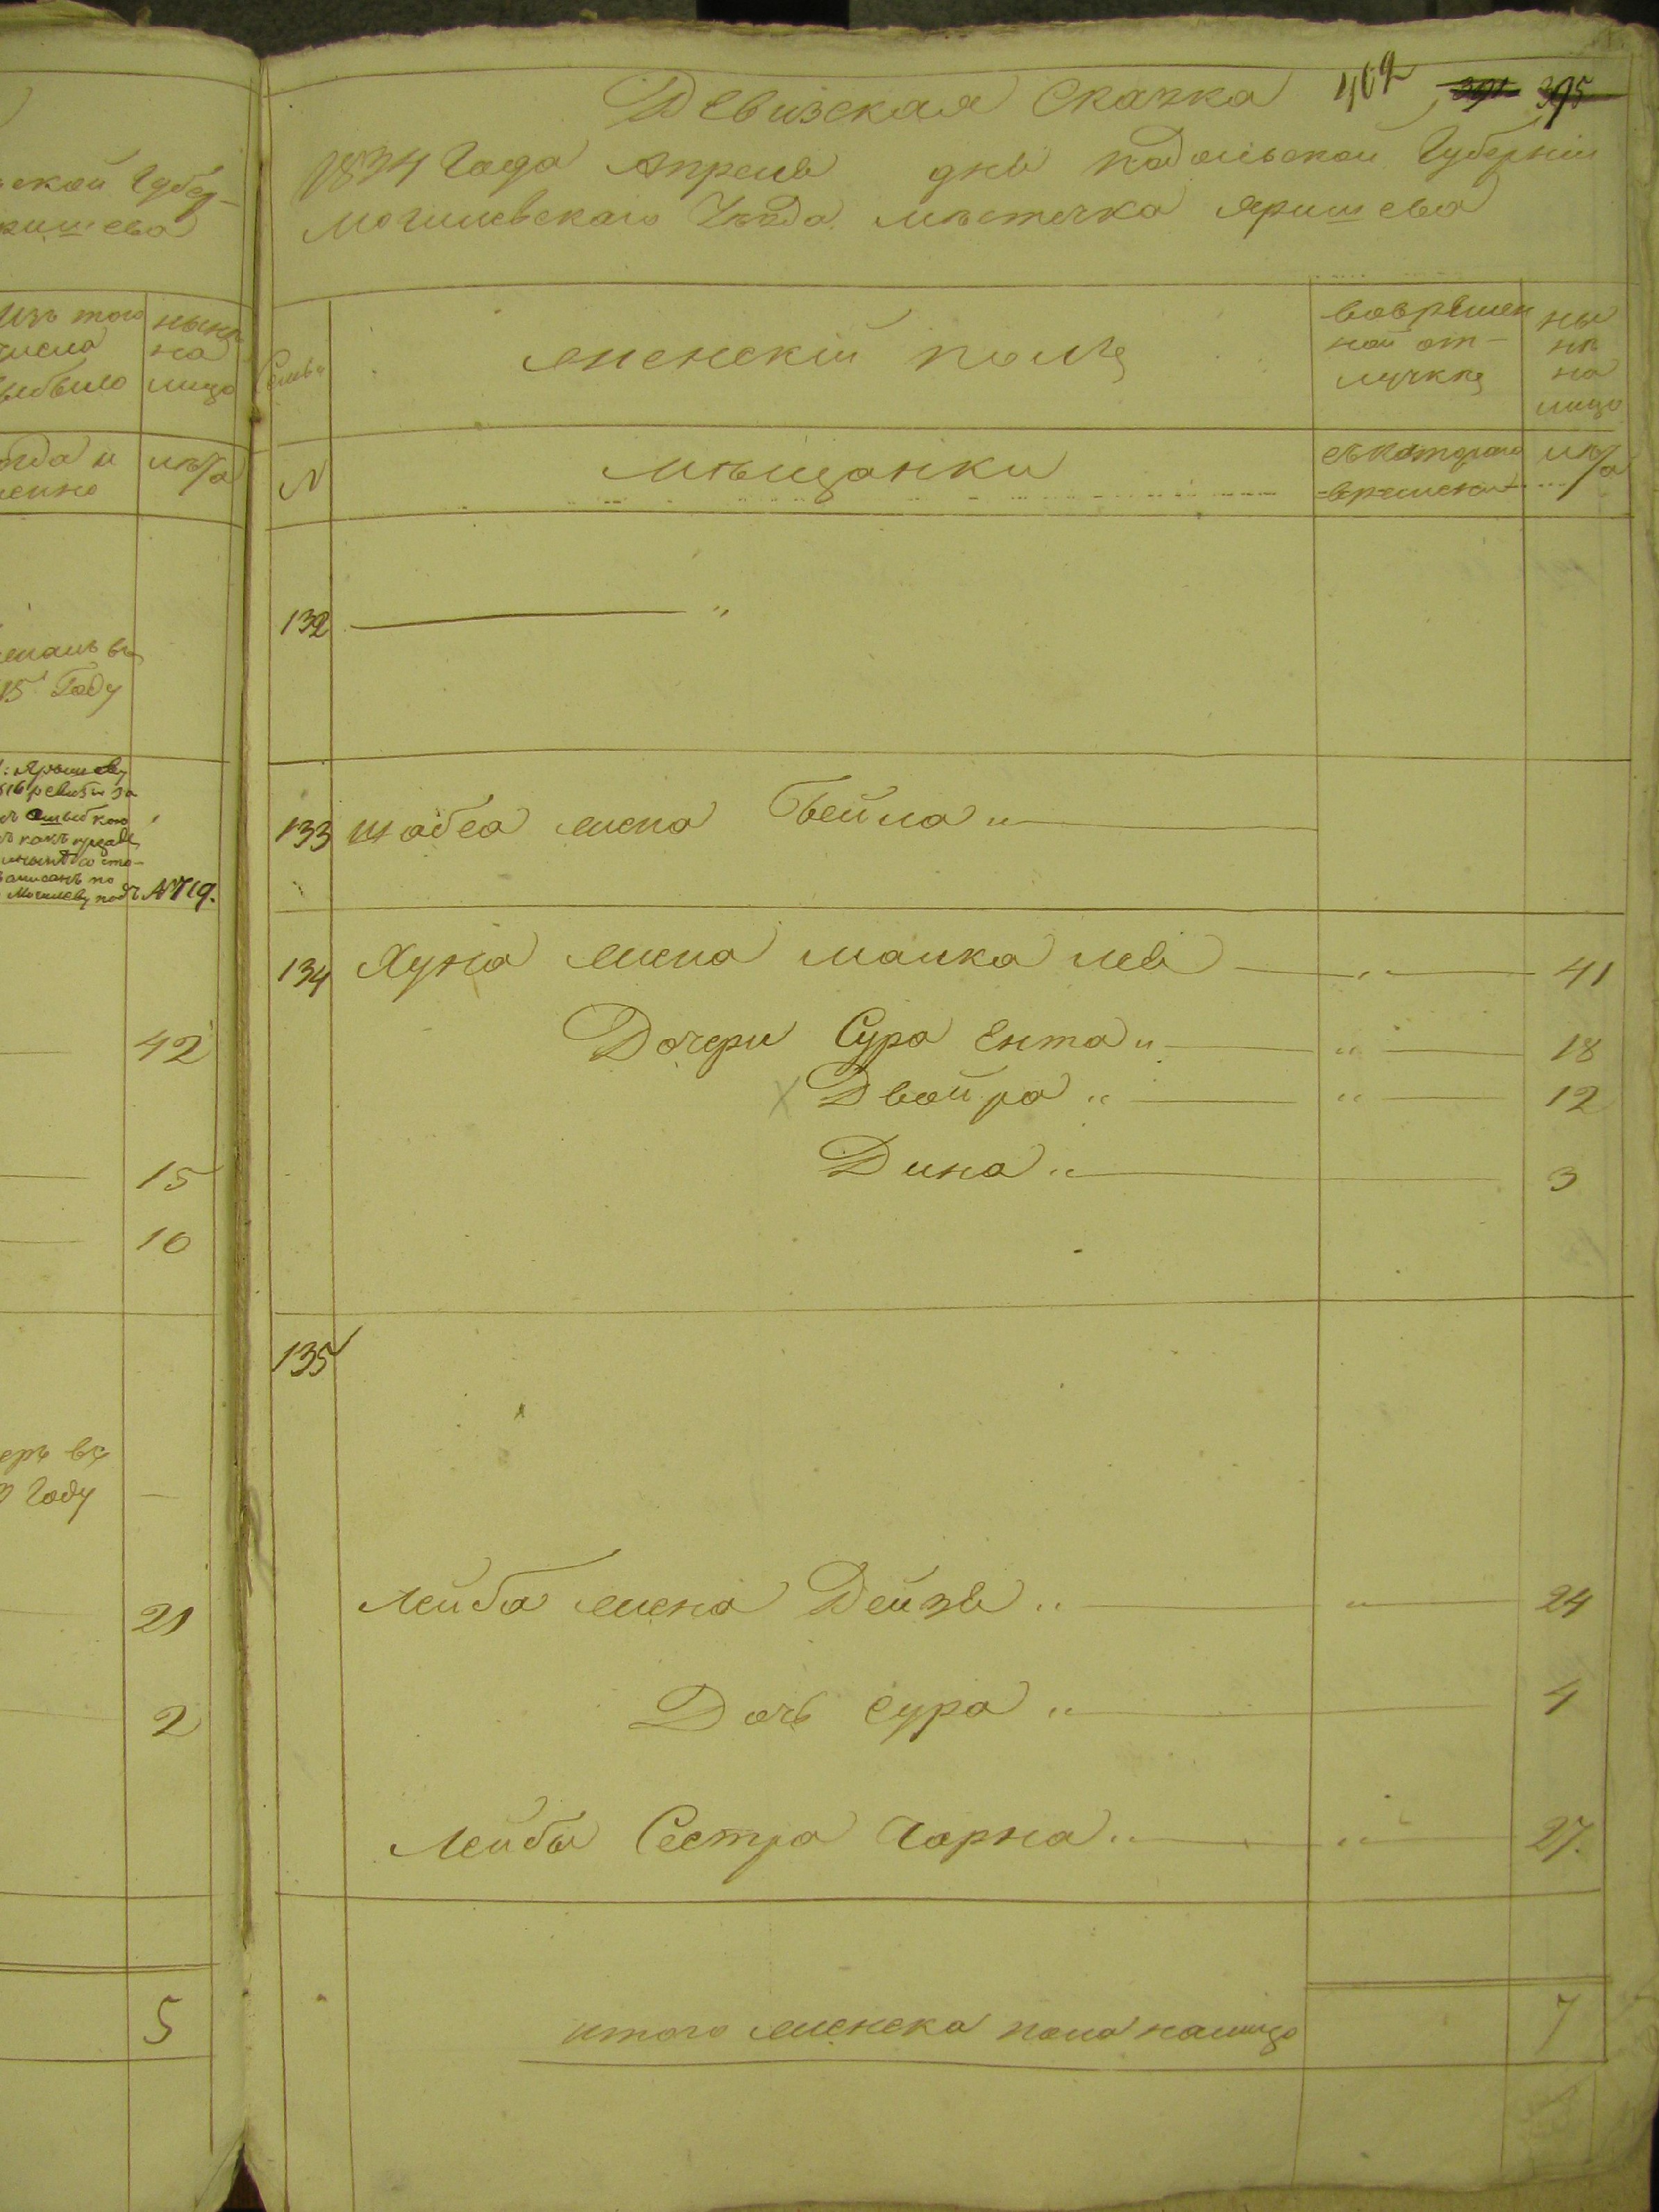 ской Губер-
ришева
изъ того
числа
выбыло
нынѣ
на
лицо
когда и
лѣта
въ
15 Году
Ярышеву
ревизіи
какъ
записанъ по
Могилеву подъ № 719.
42
15
10
въ
Году
—
21
2
5
Ревизская Сказка 402 391 395
1834 Года Апреля дня Подольской Губерніи
Могилевскаго Уѣзда мѣстечка Яришева
Семьи
женскій полъ
вовремен
ной от-
лучкѣ
ны
нѣ
на
лицо
№
мѣщанки
съ котораго
времени
лѣта
132 — "
133 Шабса жена Бейла "
134 Хуна жена Малка Лея — " — 41
Дочери Сура Ента " — " — 18
Х Двойра " — " — 12
Дина " — 3
135
Лейба жена Рейзя " — " — 24
Дочь Сура " — 4
Лейбы Сестра Чарна " — " — 27.
итого женска пола налицо 7